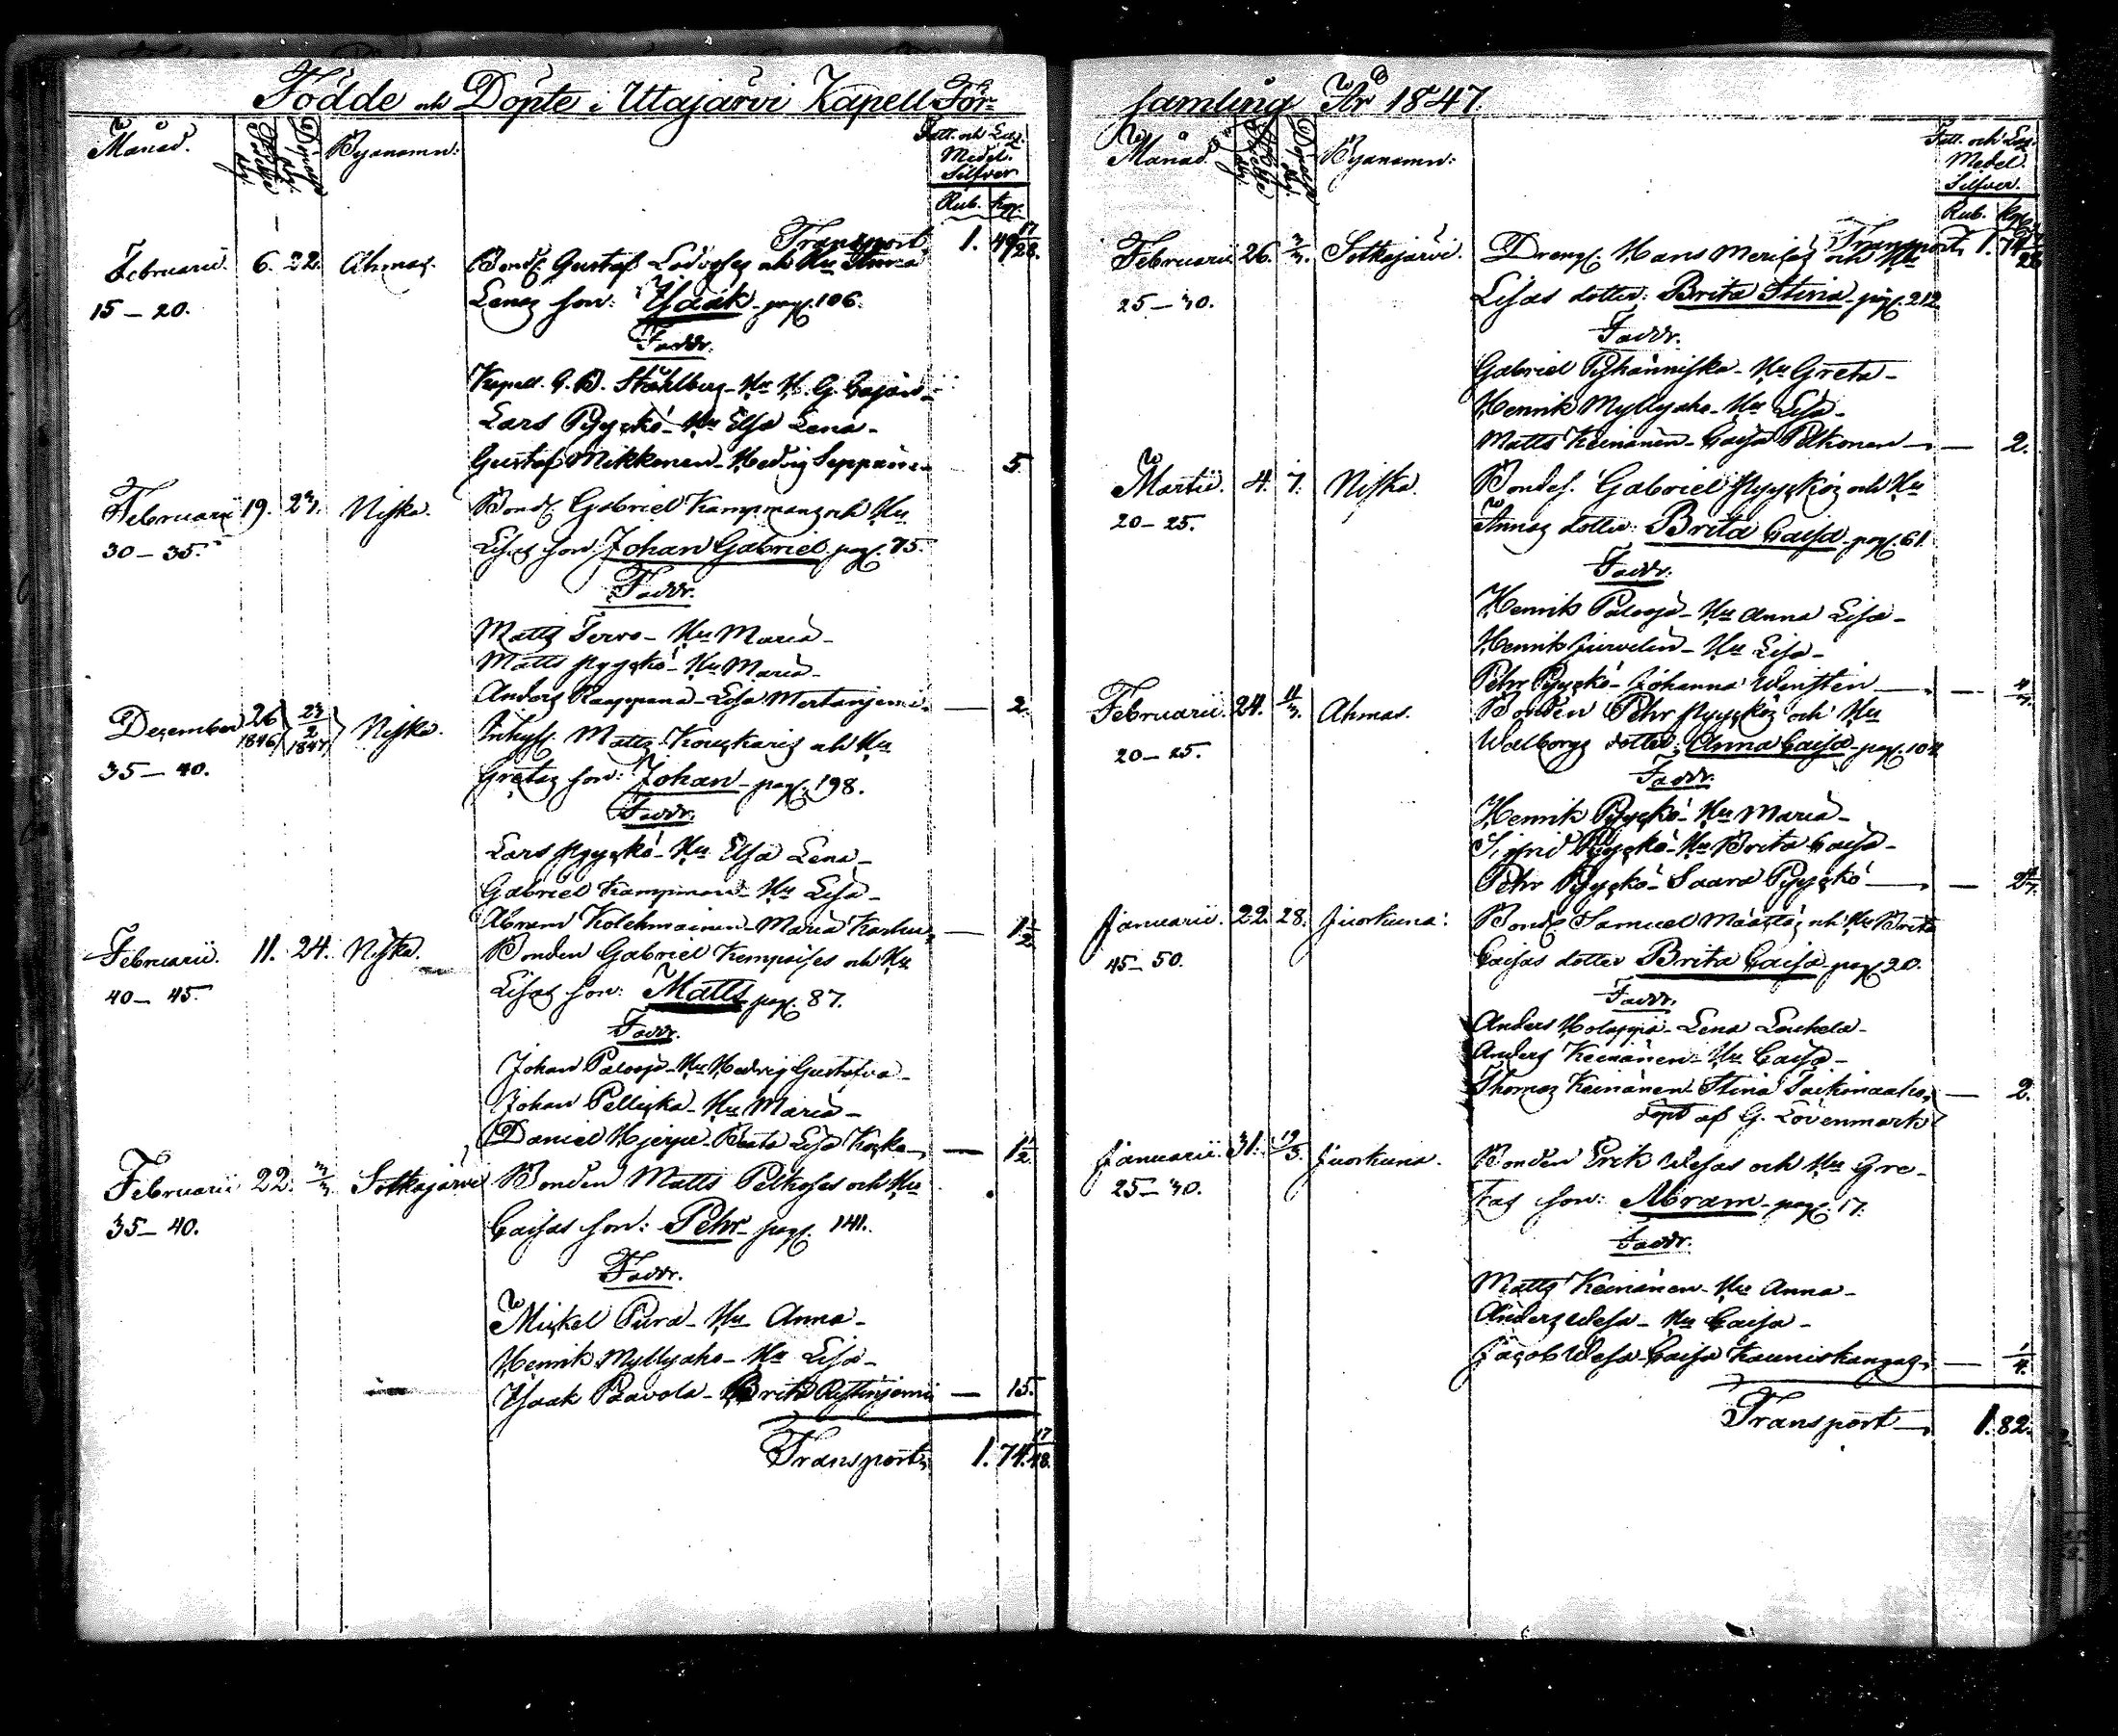 Födde och Döpte i Uttajärvi Kapell För-
Månad.
Födelse dag.
Döpelse dag.
Byanamn:
Fatt. och Laz.
Medel.
Silfver
Rub. Kop.
Transport, 1. 49 17/28.
Februarii. 6. 22. Ahmas. Bond. Gustaf Lodvigs och Hu Anna
15 – 20. Lenas son: Isaak pag. 106.
Faddr.
Kapell. G. B. Ståhlberg – Hu H. G. Cajan –
Lars Pyyckö – Hu Elsa Lena –
Gustaf Mikkonen – Hedvig Seppänen 5
Februarii 19. 23. Niska. Bond. Gabriel Kampmans och Hu
30 – 35. Lisas son: Johan Gabriel pag. 75.
Faddr.
Matts Tervo – Hu Maria –
Matts Pyyckö – Hu Maria –
Anders Kauppana – Lisa Mertaniemi – 2.
December 26 1846 23/2 1847 Niska. Inhys. Matts Kouckaris och Hu
35 – 40. Gretas son: Johan – pag. 198.
Faddr.
Lars Pyyckö – Hu Elsa Lena –
Gabriel Kampman – Hu Lisa –
Abram Kolehmainen – Maria Karhu, – 1 1/2
Februarii. 11. 24. Niska. Bonden Gabriel Kempaises och Hu
40 – 45. Lisas son: Matts pag. 87.
Faddr.
Johan Palosa – Hu Hedvig Gustafva –
Johan Pellicka – Hu Maria –
Daniel Hjerpe – Beata Lisa Kocko, – 1 1/2.
Februarii 22. 3/3 Sotkajärvi Bonden Matts Pelkoses och Hu
35 – 40. Caisas son: Pehr – pag. 141.
Faddr.
Mickel Pura – Hu Anna –
Henrik Myllyaho – Hu Lisa –
Isaak Paavola – Brita Rytiniemi – 15.
Transport, 1. 74. 17/28.
samling År 1847.
Månad.
Födelse dag.
Döpelse dag.
Byanamn:
Fatt. och Laz.
Medel.
Silfver.
Rub. Kop.
Transport, 1. 74 17/28
Februarii 26. 3/3. Sotkajärvi. Drengs. Hans Meriläs och Hu
25 – 30. Lisas dotter: Brita Stina – pag. 212
Faddr.
Gabriel Pyhänniska – Hu Greta –
Henrik Myllyaho – Hu Lisa –
Matts Keinänen – Caisa Pelkonen – 2.
Martii. 4. 7. Niska. Bondes. Gabriel Pyyckös och Hu
20 – 25. Annas dotter: Brita Caisa – pag. 61.
Faddr.
Henrik Palosa – Hu Anna Lisa –
Henrik Jurvelin – Hu Lisa –
Pehr Pyyckö – Johanna Winsten –
Februarii. 24. 11/3. Ahmas. Bonden Pehr Pyyckös och Hu
20 – 25. Walborgs dotter: Anna Caisa – pag. 104
Faddr.
Henrik Pyyckö – Hu Maria –
Sigfrid Pyyckö – Hu Brita Caisa –
Pehr Pyyckö – Saara Pyyckö –
Januarii. 22. 28. Juorkuna. Bond. Samuel Määttäs och Hu Brita
45 – 50. Caisas dotter Brita Caisa pag 20.
Faddr.
Anders Holappa – Lena Leuhela –
Anders Keinänen – Hu Caisa –
Thomas Keinänen – Stina Taikinaaho, – 2.
döpt af G. Lövenmark
Januarii. 31. 19/3. Juorkuna. Bonden Erik Wesas och Hu Gre-
25 – 30. tas son: Abram – pag. 17.
Faddr.
Matts Keinänen – Hu Anna –
Anders Wesa – Hu Caisa –
Jacob Wesa – Caisa Kauniskangas, – 1/4.
Transport – 1. 82.